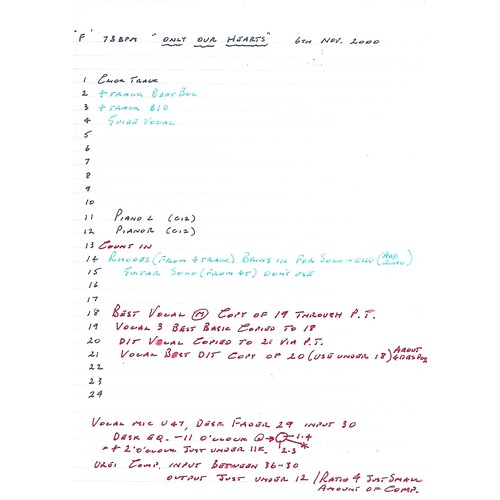 "F" 73 BPM "ONLY OUR HEARTS" 6TH NOV. 2000
1 CLICK TRACK
2 4 TRACK BEAT BOX
3 4 TRACK
4 GUIDE VOCAL
5
6
7
7
8
9
10
11 PIANO L (C12)
12 PIANO R (C12)
13 COUNT IN
14 RHODES (FROM 4 TRACK) BRING IN FOR SOLO → END
15 GUITAR SOLO (FROM 4T) DON'T USE
16
17
18 BEST VOCAL (M) COPY OF 19 THROUGH P.T.
19 VOCAL 3 BEST BASIC COPIED TO 18
20 DIT VOCAL COPIED TO 21 VIA P.T.
21 VOCAL BEST DIT COPY OF 20 (USE UNDER 18) ABOUT
22
23
24
VOCAL MIC U47, DESK FADER 29 INPUT 30
DESK EQ. -11 O'CLOCK @ → 1.4
*+ 2 'O'CLOCK JUST UNDER 11K. 2.3 *
UREI COMP. INPUT BETWEEN 36-30
OUTPUT JUST UNDER 12 / RATIO 4 JUST SMALL
AMOUNT OF COMP.